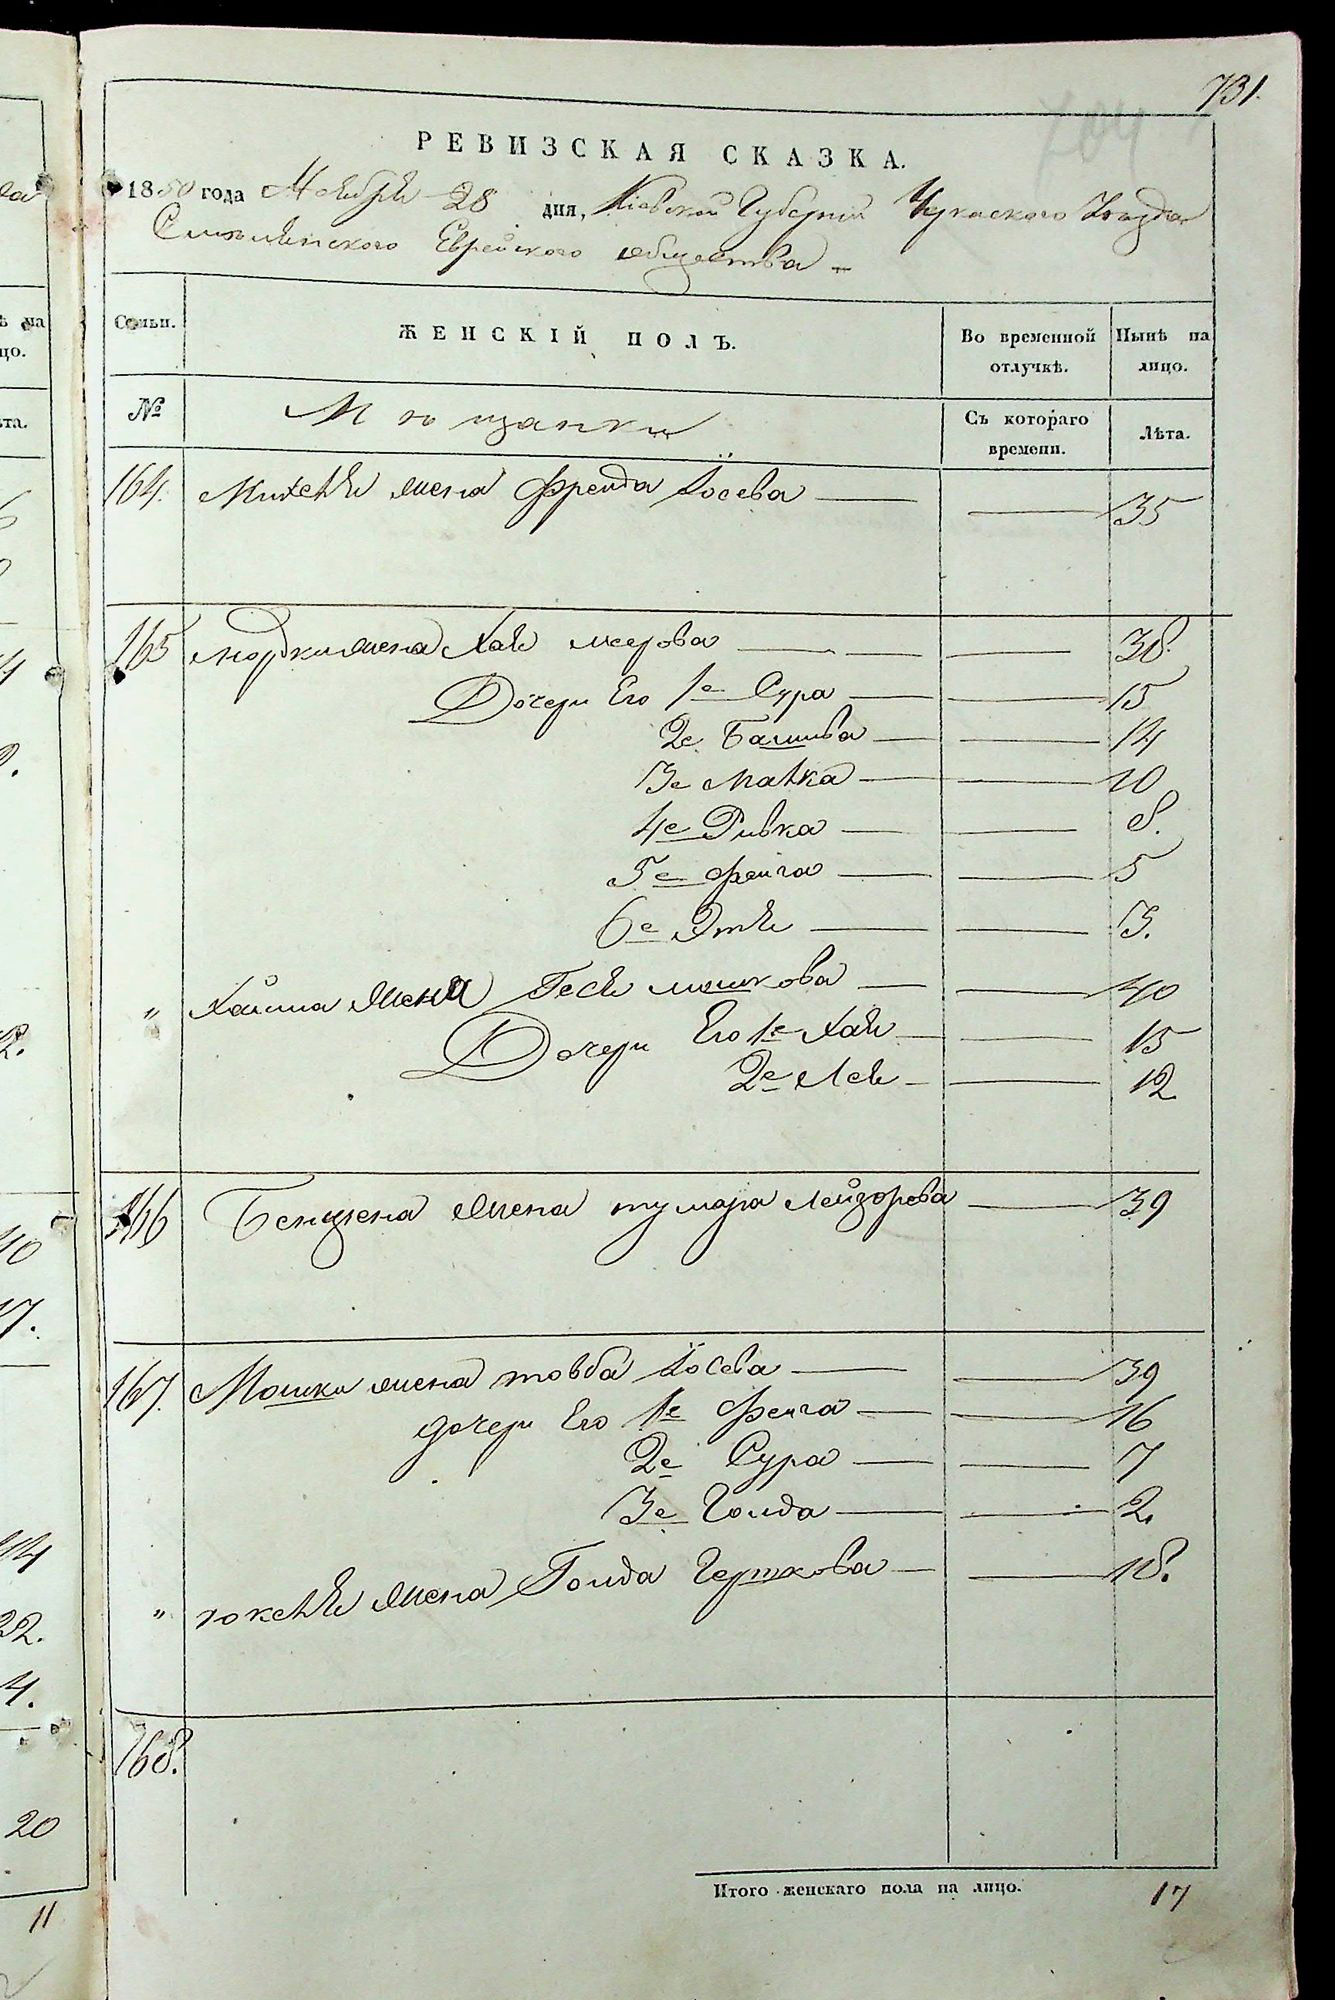 731.
704
РЕВИЗСКАЯ СКАЗКА.
1850 года Ноября 28 дня, Кіевской Губерніи Черкаского Уезда
Смилянского Еврейского общества
Семьи.
ЖЕНСКІЙ ПОЛЪ.
Во временной отлучкѣ.
Нынѣ на лицо.
№
Мѣщанки
Съ котораго времени.
Лѣта.
164. Михеля жена Фрейда Іосева 35
165 Мордки жена Хая меерова 38.
Дочери Его 1е Сура 15
2е Башива 14
3е Малка 10
4е Ривка 8.
5е Фейга 5
6е Этля 3.
" Хаима жена Геся мошкова 40
Дочери Его 1е Хая 15
2е Лея 12
166 Бенцена жена тумара Лейзорова 39
167. Мошки жена товба Іосева 39
дочери Его 1е Фейга 16
2е Сура 7
3е Голда 2.
" юкеля жена Голда Герткова 18.
168.
Итого женскаго пола на лицо. 17